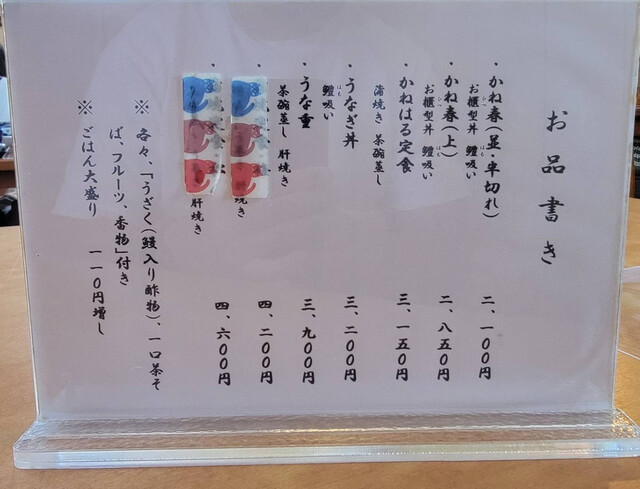 お品書き
・かね春(並・半切れ) 二、一00円
お櫃型丼 鱧吸い
・かね春(上) 二、八五0円
お櫃型丼 鱧吸い
・かねはる定食 三、一五0円
蒲焼き 茶碗蒸し
・うなぎ丼 三、二00円
鱧吸い
・うな重 三、九00円
茶碗蒸し 肝焼き
・ 四、二00円
・ 四、六00円
肝焼き
※ 各々、「うざく(鰻入り酢物)、一口茶そ
ば、フルーツ、香物」付き
※ ごはん大盛り 一一0円増し